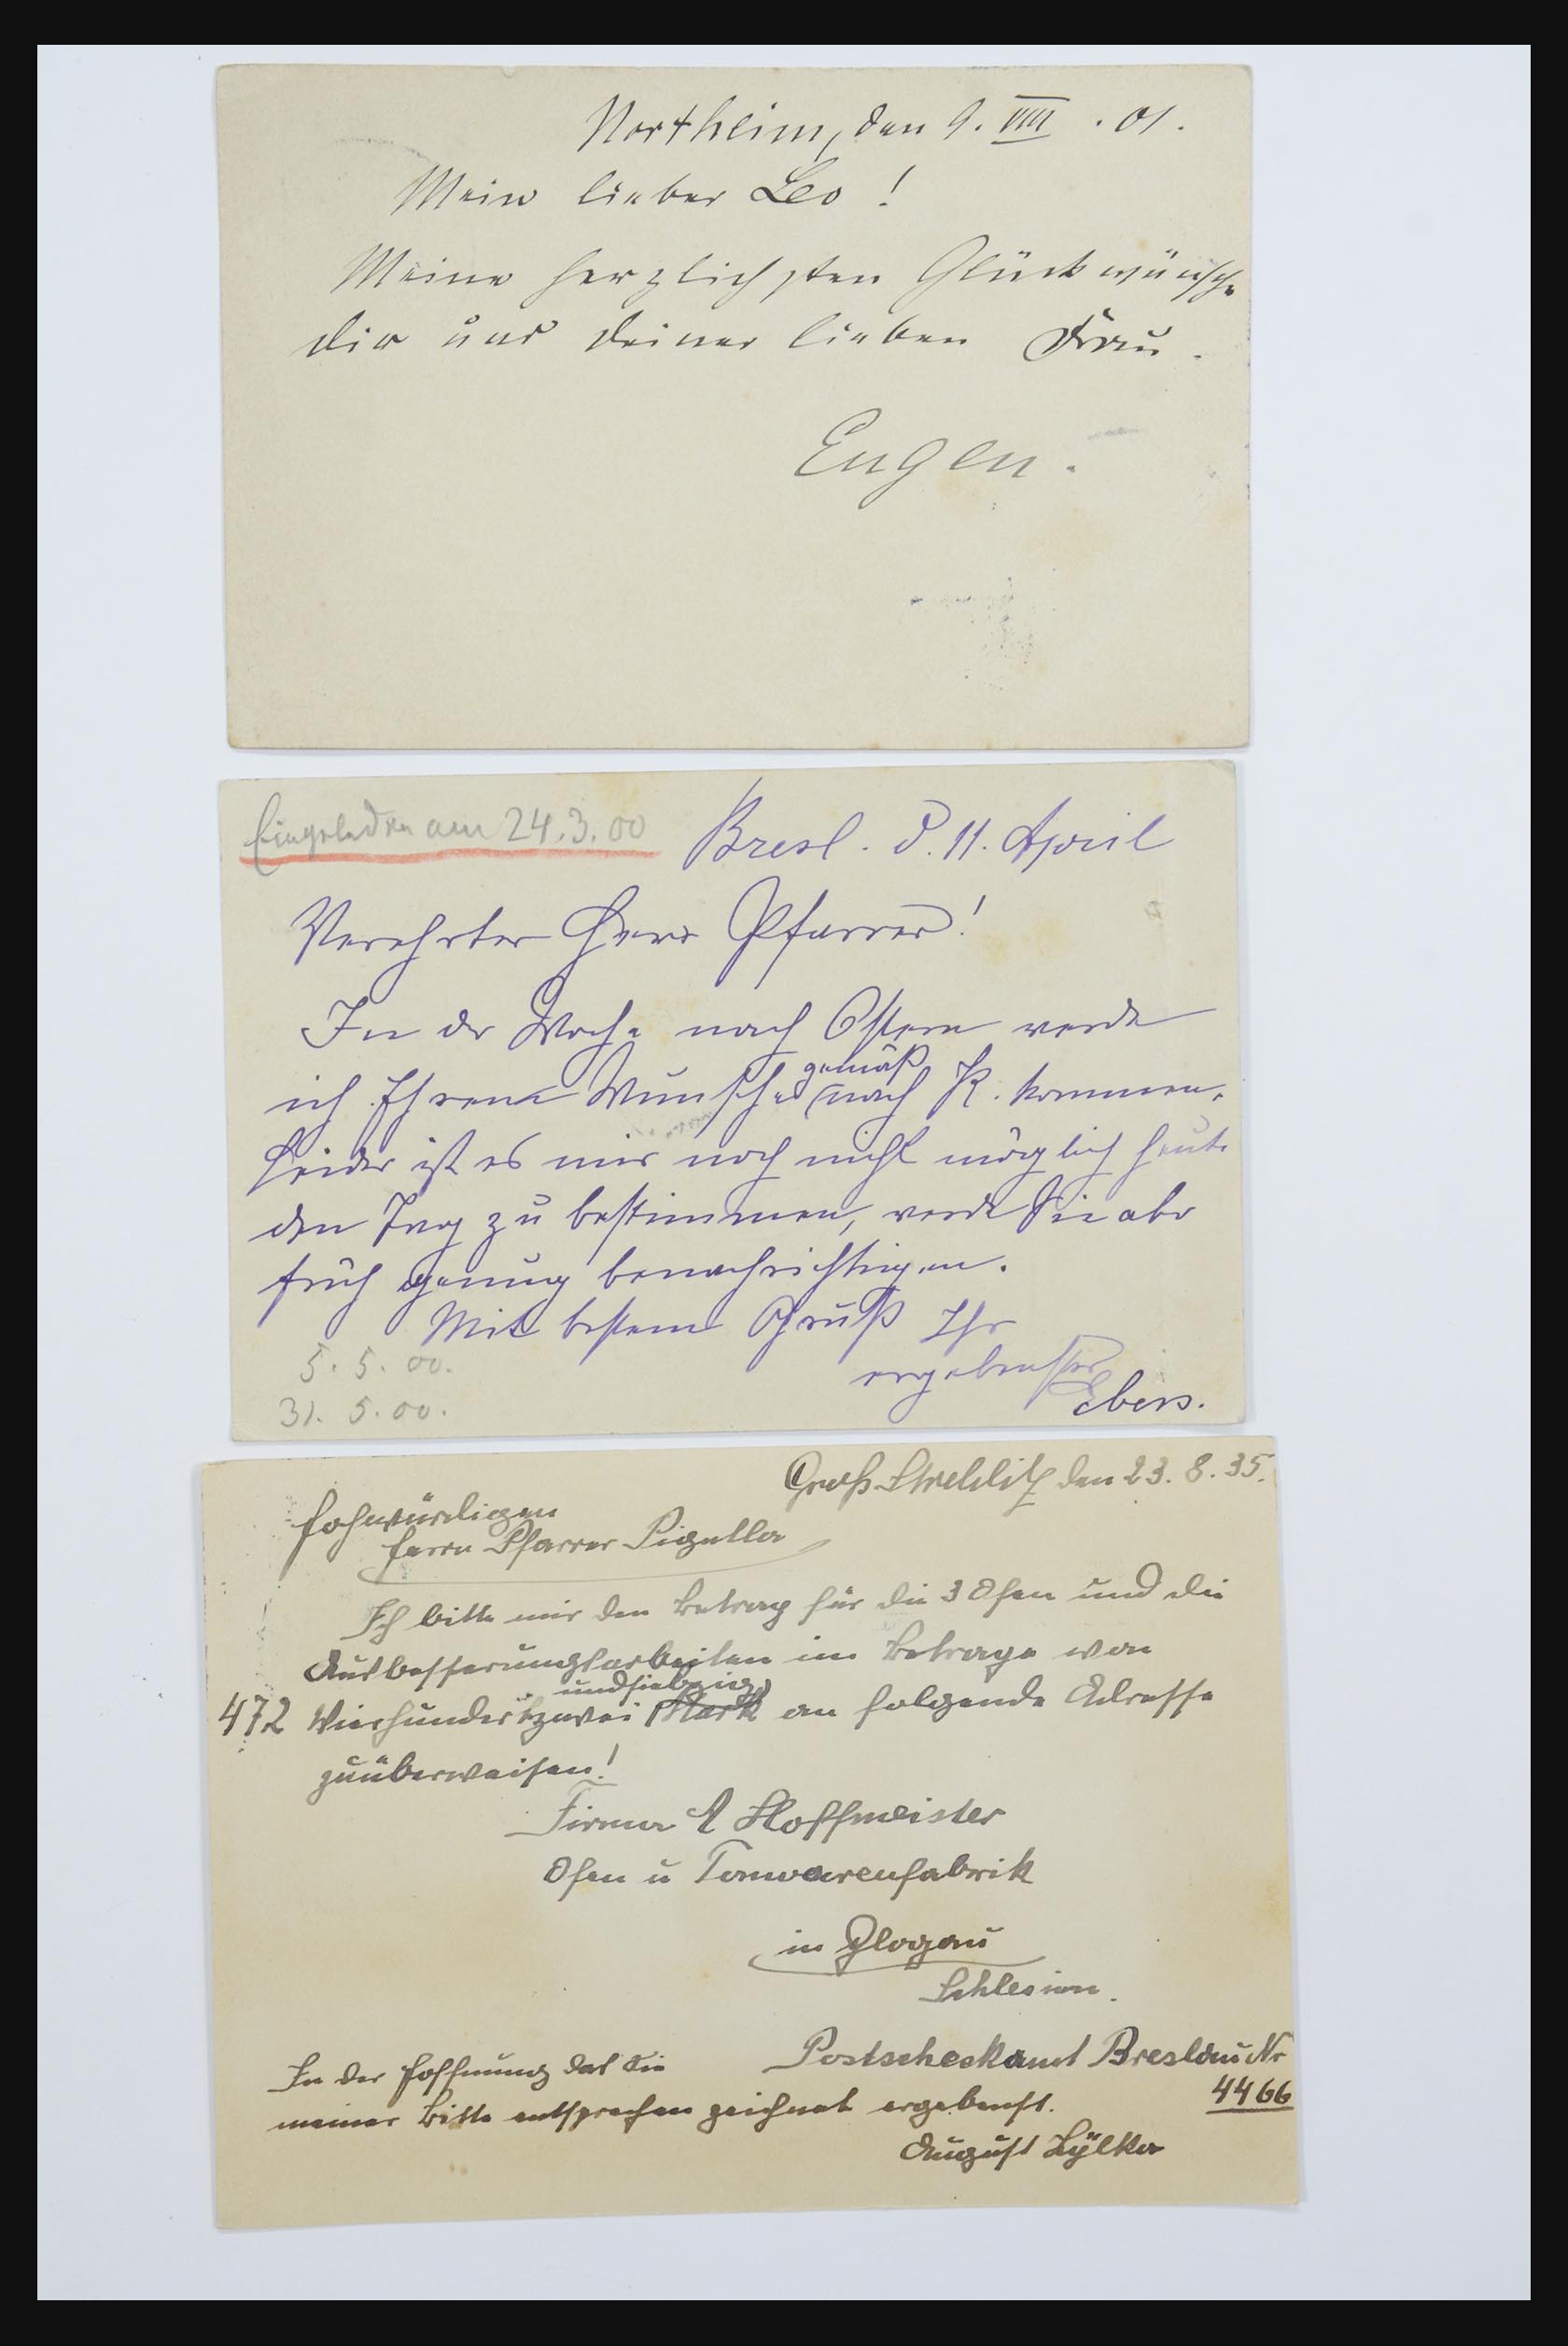 Northeim, den 9. VIII. 01.
Mein lieber Leo!
Meine herzlichsten Glückwünsche
dir und deiner lieben Frau.
Eugen.
Eingeladen am 24.3.00
Bresl. d. 11. April
Verehrter Herr Pfarrer!
In der Woche nach Ostern werde
gemäß
ich Ihrem Wunsche nach K. kommen.
Leider ist es mir noch nicht möglich heute
den Tag zu bestimmen, werde Sie aber
früh genug benachrichtigen.
Mit bestem Gruß Ihr
5. 5. 00.
ergebenster
31. 5. 00.
Ebers.
Groß Strehlitz den 23. 8. 35.
Hochwürdigen
Herrn Pfarrer Pigulla
Ich bitte mir den Betrag für die 3 Öfen und die
Ausbesserungsarbeiten im Betrage von
undsiebzig
472 Vierhundertzwei Mark an folgende Adresse
zuüberweisen!
Firma Hoffmeister
Ofen u Tonwarenfabrik
in Glogau
Schlesien.
Postscheckamt Breslau Nr
4466
In der Hoffnung das Sie
meiner Bitte entsprechen zeichnet ergebenst.
August Zylka